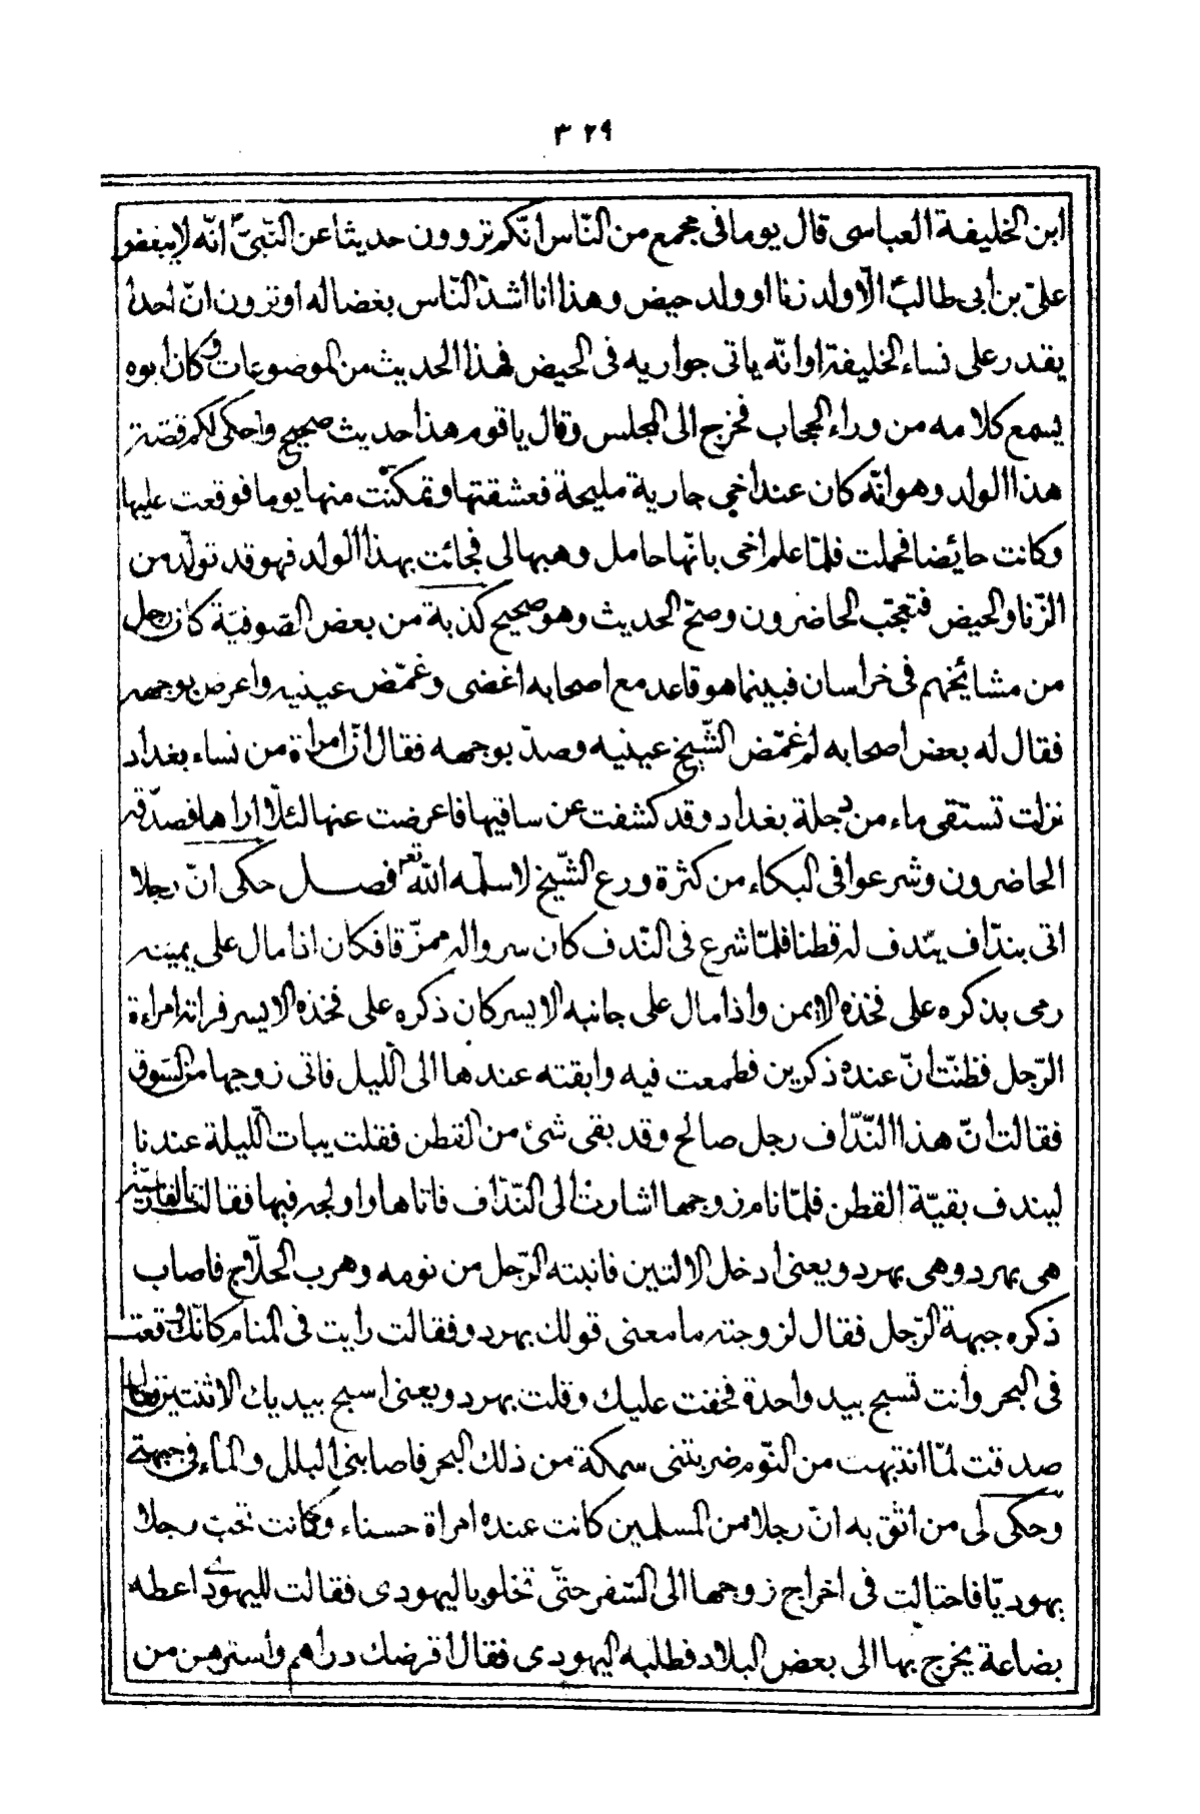 ٣٢٩
ابن الخليفة العباسى قال يوما فى مجمع من النّاس انّكم تروون حديثا عن النّبىّ انّه لا يبغض
علىّ بن أبى طالب الّا ولد زنا او ولد حيض وهذا انا اشدّ النّاس بغضا له او ترون انّ احدا
يقدر على نساء الخليفة او انّه ياتى جواريه فى الحيض فهذا الحديث من الموضوعات وكان أبوه
يسمع كلامه من وراء الحجاب فخرج الى المجلس وقال يا قوم هذا حديث صحيح وأحكى لكم قصّة
هذا الولد وهو انّه كان عند اخى جارية مليحة فعشقتها وتمكنّت منها يوما فوقعت عليها
وكانت حائضا فحملت فلمّا علم اخى بانّها حامل وهبها لى فجائت بهذا الولد فهو قد تولّد من
الزّنا والحيض فتعجّب الحاضرون وصحّ الحديث وهو صحيح كذبة من بعض الصّوفيّة كان رجل
من مشائخهم فى خراسان فبينما هو قاعد مع اصحابه اغضى وغمّض عينيه واعرض بوجهه
فقال له بعض اصحابه لم غمّض الشّيخ عينيه وصدّ بوجهه فقال انّ امراة من نساء بغداد
نزلت تستقى ماء من دجلة بغداد وقد كشفت عن ساقيها فاعرضت عنها لئلّا اراها فصدّقه
الحاضرون وشرعوا فى البكاء من كثرة ورع الشّيخ لا سلّمه اللّه تع فصل حكى انّ رجلا
اتى بندّاف يندف له قطنا فلمّا شرع فى النّدف كان سرواله ممزّقا فكان اذا مال على يمينه
رمى بذكره على فخذه الايمن واذا مال على جانبه الايسر كان ذكره على فخذه الايسر فراته امراءة
الرّجل فظنّت انّ عنده ذكرين فطمعت فيه وابقته عندها الى اللّيل فاتى زوجها من السّوق
فقالت انّ هذا النّدّاف رجل صالح وقد بقى شئ من القطن فقلت يبات اللّيلة عندنا
ليندف بقيّة القطن فلمّا نام زوجها اشارت الى النّدّاف فاتاها واولجه فيها فقالت بالفارسيّة
هى بهردو هى بهردو يعنى ادخل الالتين فانبته الرّجل من نومه وهرب الحلّاج فاصاب
ذكره جبهة الرّجل فقال لزوجته ما معنى قولك بهردو فقالت رايت فى المنام كانّك وقعت
فى البحر وأنت تسبح بيد واحدة فخفت عليك وقلت بهردو يعنى اسبح بيديك الاثنتين فقال
صدقت لمّا انتبهت من النّوم ضربتنى سمكة من ذلك البحر فاصابنى البلل والماء فى جبهتى
وحكى لى من اثق به انّ رجلا من المسلمين كانت عنده امراة حسناء وكانت تحبّ رجلا
يهوديّا فاحتالت فى اخراج زوجها الى السّفر حتّى تخلو باليهودى فقالت لليهودى اعطه
بضاعة يخرج بها الى بعض البلاد فطلبه اليهودى فقال اقرضك دراهم وأسترهن من